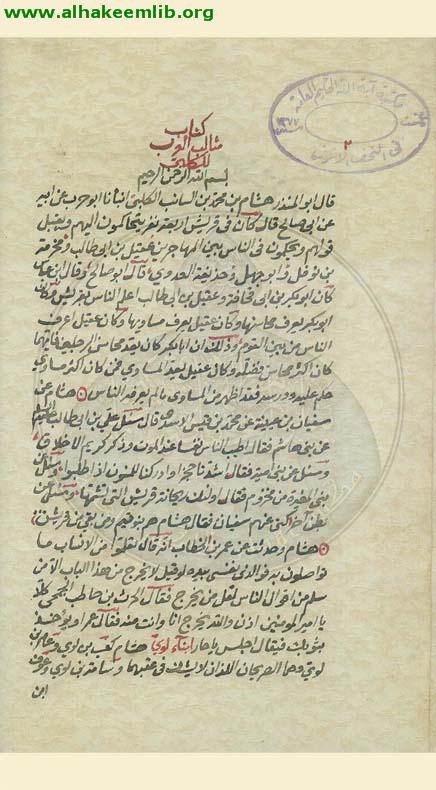 www.alhakeemlib.org
مكتبة آية الله الحكيم العامة
٢
في النجف الاشرف
كتاب
مثالب العرب
للكلبي
بسم الله الرحمن الرحيم
قال ابو المنذر هشام بن محمد بن السائب الكلبي انبأنا ابو حرب بن ابير
عن ابى صالح قال كان في قريش اربعة نفر يتحاكمون اليهم ويقبل
قولهم ويحكمون في الناس بين المهاجر بن عقيل بن ابى طالب ومخرمة
بن نوفل وابو جهل وحذيفة العدوى قالت ابو صالح وقال ابن عباس
كان ابو بكر بن ابى قحافة وعقيل بن ابى طالب اعلم الناس بقريش وكان
ابو بكر يعرف محاسنها وكان عقيل يعرف مساويها وكان عقيل اعرف
الناس من بين القوم وذلك ان ابا بكر كان يعد محاسن الرجلين فايهما
كان اكثر محاسن فضله وكان عقيل يعد المساوى فمن كان اكثر مساوي
حكم عليه فقد اظهر من المساوى ما لم يعرفه الناس هشام عن
سفيان بن عيينة عن محمد بن قيس الاسدى قال سئل علي بن ابى طالب
عن بنى هاشم فقال اطيب الناس نفسا عند الموت وذكر كريم الاخلاق
وسئل عن بنى امية فقال اشدنا حجزا وادركنا للامور اذا طلبوا وسئل عن
بنى المغيرة من مخزوم فقال اولئك ريحانة قريش التى تشمها وسئل عن
بطن آخر كنى عنهم سفيان فقال هشام هم بنو تيم ومن بقى من قريش
هشام وحدثت عن عمر بن الخطاب انه قال تعلموا من الانساب ما
تواصلون به فوالذى نفسى بيده لو قيل لا يخرج من هذا الباب الا من
سلم من اقوال الناس لقل من يخرج فقال الحرث بن حاطب الجمحى كلا
يا امير المومنين اذن والله يخرج انا وانت منه فقال عمر او يؤخذ
بثوبك فيقال اجلس يا حار ابناء لوى هشام كعب بن لوى وعامر بن
لوى وهما الصريحان اللذان لا يشك في عقبهما وسامة بن لوى وعوف
ابن